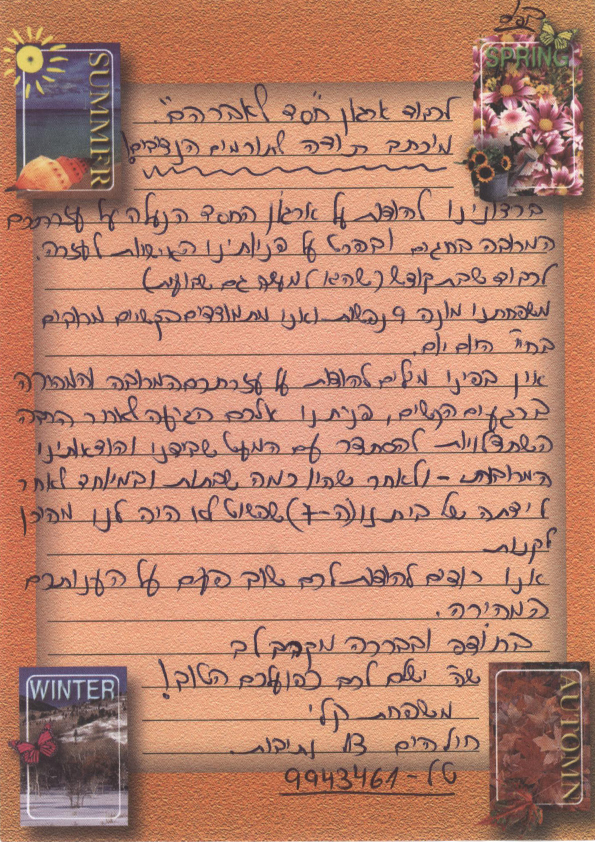 בס"ד
SUMMER
SPRING
לכבוד ארגון "חסד לאברהם".
מכתב תודה לתורמים הנדיבים!
ברצוננו להודות על ארגון החסד הנעלה על עזרתכם
המרובה בחגים ובפרט על פניותינו האישיות לעזרה.
לכבוד שבת קודש (שהיא למעשה גם שבועית)
משפחתנו מונה 9 נפשות ואנו מתמודדים בקשיים מרובים
בחיי היום יום.
אין בפינו מילים להודות על עזרתכם המרובה והמהירה
ברגעים הקשים, פנייתנו אליכם הגיעה לאחר הרבה
השתדלויות להסתדר עם המעט שבידנו והוצאותינו
המרובות - ולאחר שהיו כמה שבתות ובמיוחד לאחר
לידתה של ביתנו (ה-7) שפשוט לא היה לנו מהיכן
לקנות
אנו רוצים להודות לכם שוב פעם על הענותכם
המהירה.
בתודה ובברכה מקרב לב
שה' ישלם לכם כפועלכם הטוב!
משפחת קלי
13 נתיבות.
טל- 9943461
WINTER
AUTOMN